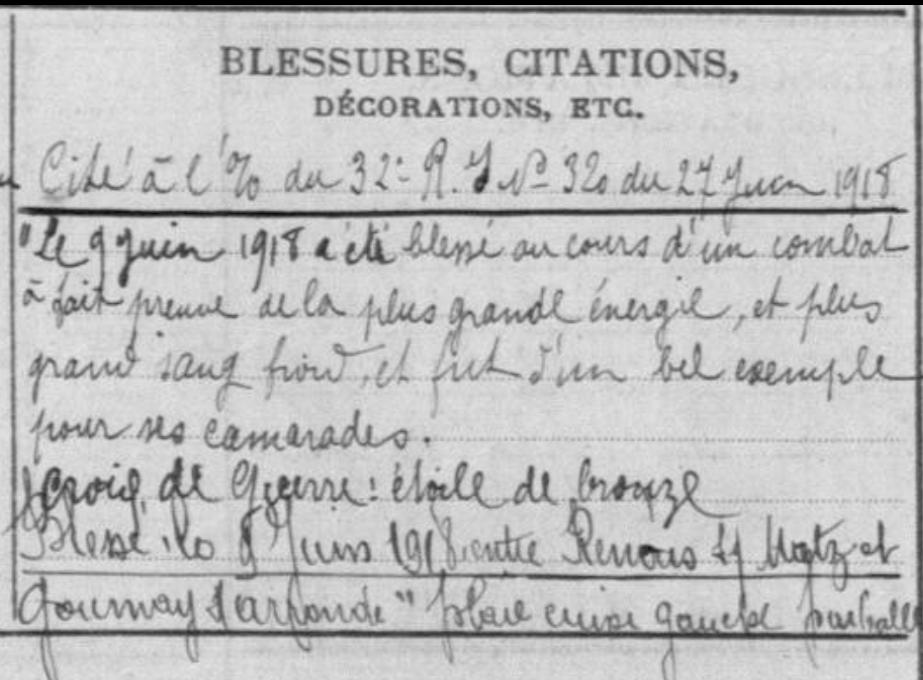 BLESSURES, CITATIONS,
DÉCORATIONS, ETC.
Cité à l'% du 32e R.I Nº 320 du 27 Juin 1918
"Le 9 juin 1918 a été blessé au cours d'un combat
à fait preuve de la plus grande énergie, et plus
grand sang froid, et fut d'un bel exemple
pour ses camarades.
Croix de Guerre: étoile de bronze
Blessé le 9 Juin 1918 entre s/ Matz et
Gournay s/ aronde" plaie cuisse gauche par balle